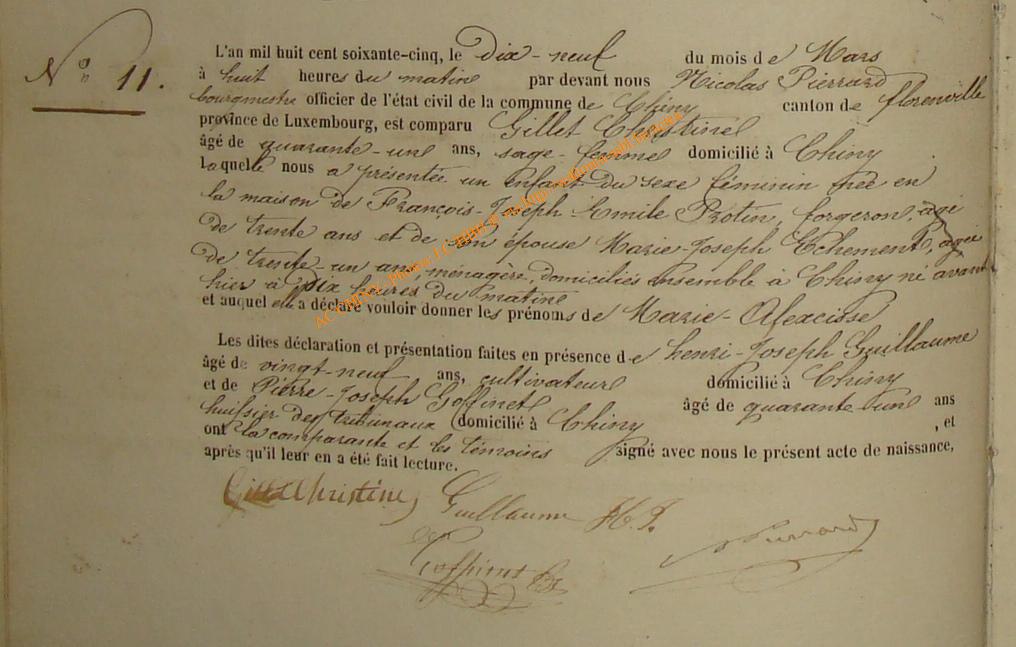 No 11.
L'an mil huit cent soixante-cinq, le dix-neuf du mois de Mars
à huit heures du matin par devant nous Nicolas Pierrard
bourgmestre officier de l'état civil de la commune de Chiny canton de florenville
province de Luxembourg, est comparu Gillet Christine
âgé de quarante-un ans, sage-femme domicilié à Chiny
laquelle nous a présenté un enfant du sexe féminin née en
la maison de François-Joseph-Emile Protin, forgeron, âgé
de trente ans et de son épouse Marie-Joseph Echement, agée
de trente-un ans, ménagère, domiciliés ensemble à Chiny né avant
hier à dix heures du matin
et auquel elle a déclaré vouloir donner les prénoms de Marie-Alexcisse
Les dites déclaration et présentation faites en présence de henri-Joseph Guillaume
âgé de vingt-neuf ans, cultivateur domicilié à Chiny
et de Pierre-Joseph Goffinet âgé de quarante-un ans
huissier des tribunaux domicilié à Chiny , et
ont la comparante et les témoins signé avec nous le présent acte de naissance,
après qu'il leur en a été fait lecture.
Gillet Christine Guillaume H. J.
Goffinet Pierrard